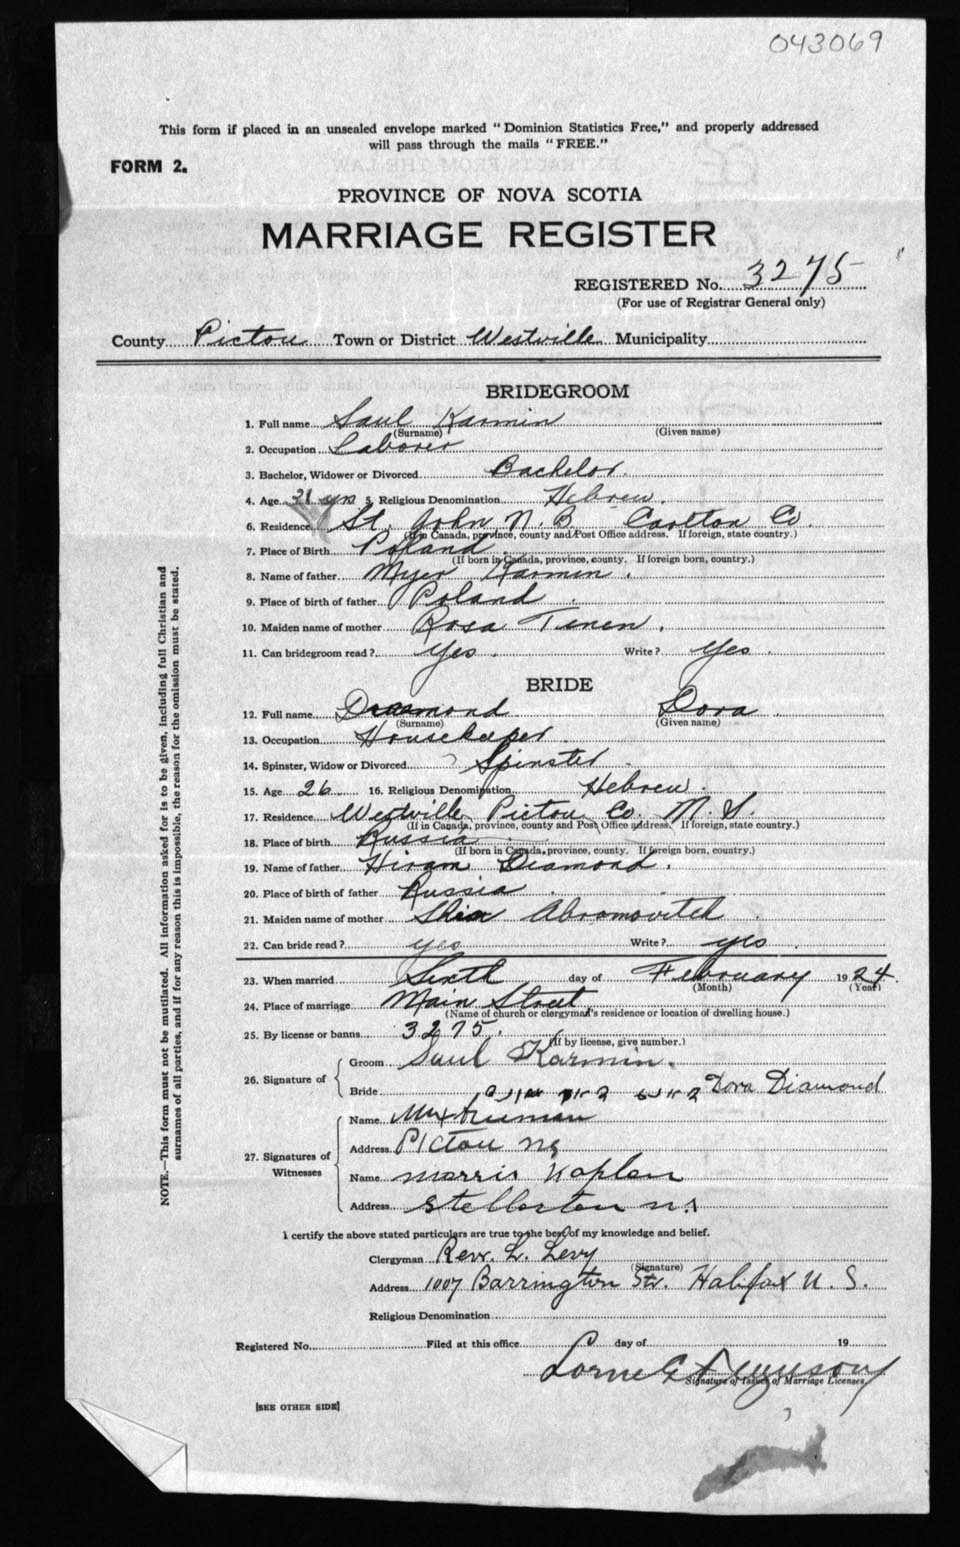 043069
This form if placed in an unsealed envelope marked "Dominion Statistics Free," and properly addressed
will pass through the mails "FREE."
FORM 2.
PROVINCE OF NOVA SCOTIA
MARRIAGE REGISTER
REGISTERED No. 3275
(For use of Registrar General only)
County Pictou Town or District Westville Municipality
BRIDEGROOM
1. Full name Saul Karmin
(Surname) (Given name)
2. Occupation Laborer
3. Bachelor, Widower or Divorced Bachelor
4. Age 31 yrs 5. Religious Denomination Hebrew.
6. Residence St. John N.B Carlton Co.
(If in Canada, province, county and Post Office address. If foreign, state country.)
7. Place of Birth Poland
(If born in Canada, province, county. If foreign born, country.)
8. Name of father Myer Karmin.
9. Place of birth of father Poland.
10. Maiden name of mother Rosa Tenen.
11. Can bridegroom read? Yes. Write? Yes.
BRIDE
12. Full name Diamond Dora
(Surname) (Given name)
13. Occupation Housekeeper
14. Spinster, Widow or Divorced Spinster
15. Age 26 16. Religious Denomination Hebrew.
17. Residence Westville Pictou Co. N.S.
(If in Canada, province, county and Post Office address. If foreign, state country.)
18. Place of birth Russia
(If born in Canada, province, county. If foreign born, country.)
19. Name of father Hiram Diamond.
20. Place of birth of father Russia
21. Maiden name of mother Abramovitch
22. Can bride read? yes Write? yes
23. When married Sixth day of February 1924.
(Month) (Year)
24. Place of marriage Main Street
(Name of church or clergyman's residence or location of dwelling house.)
25. By license or banns 3275.
(If by license, give number.)
26. Signature of
Groom Saul Karmin.
Bride Dora Diamond
27. Signatures of Witnesses
Name Max
Address Pictou NS
Name Morris Kaplan
Address Stellarton N.S
I certify the above stated particulars are true to the best of my knowledge and belief.
Clergyman Rev. L. Levy
(Signature)
Address 1007 Barrington Str. Halifax N.S.
Religious Denomination
Registered No. Filed at this office day of 19
Lorne G Ferguson
Signature of Issuer of Marriage Licenses
[SEE OTHER SIDE]
NOTE.—This form must not be mutilated. All information asked for is to be given, including full Christian and
surnames of all parties, and if for any reason this is impossible, the reason for the omission must be stated.